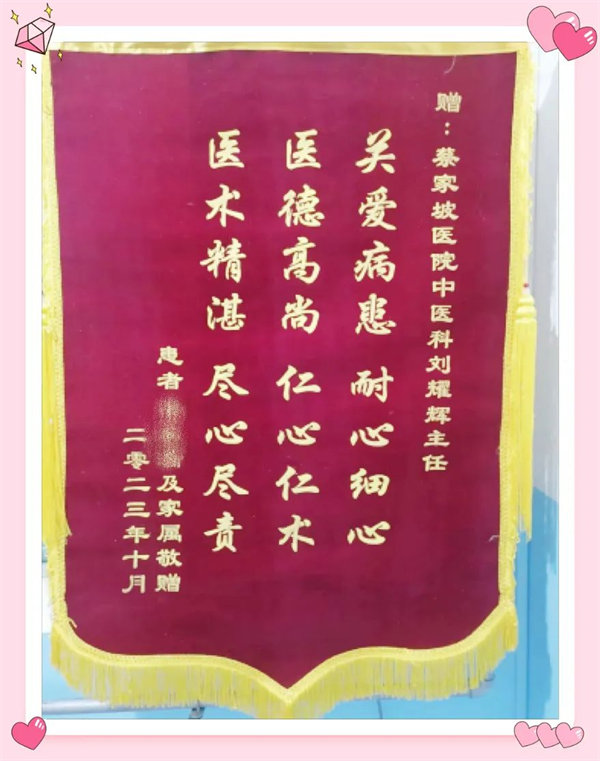 赠：蔡家坡医院中医科刘耀辉主任
关爱病患 耐心细心
医德高尚 仁心仁术
医术精湛 尽心尽责
患者 及家属敬赠
二零二三年十月